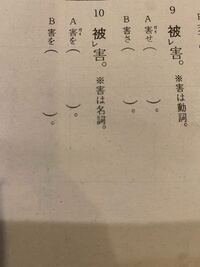 9 被レ害。※害は動詞。
A 害せ（　　）。
B 害さ（　　）。
10 被レ害。※害は名詞。
A 害を（　　）。
B 害を（　　）。